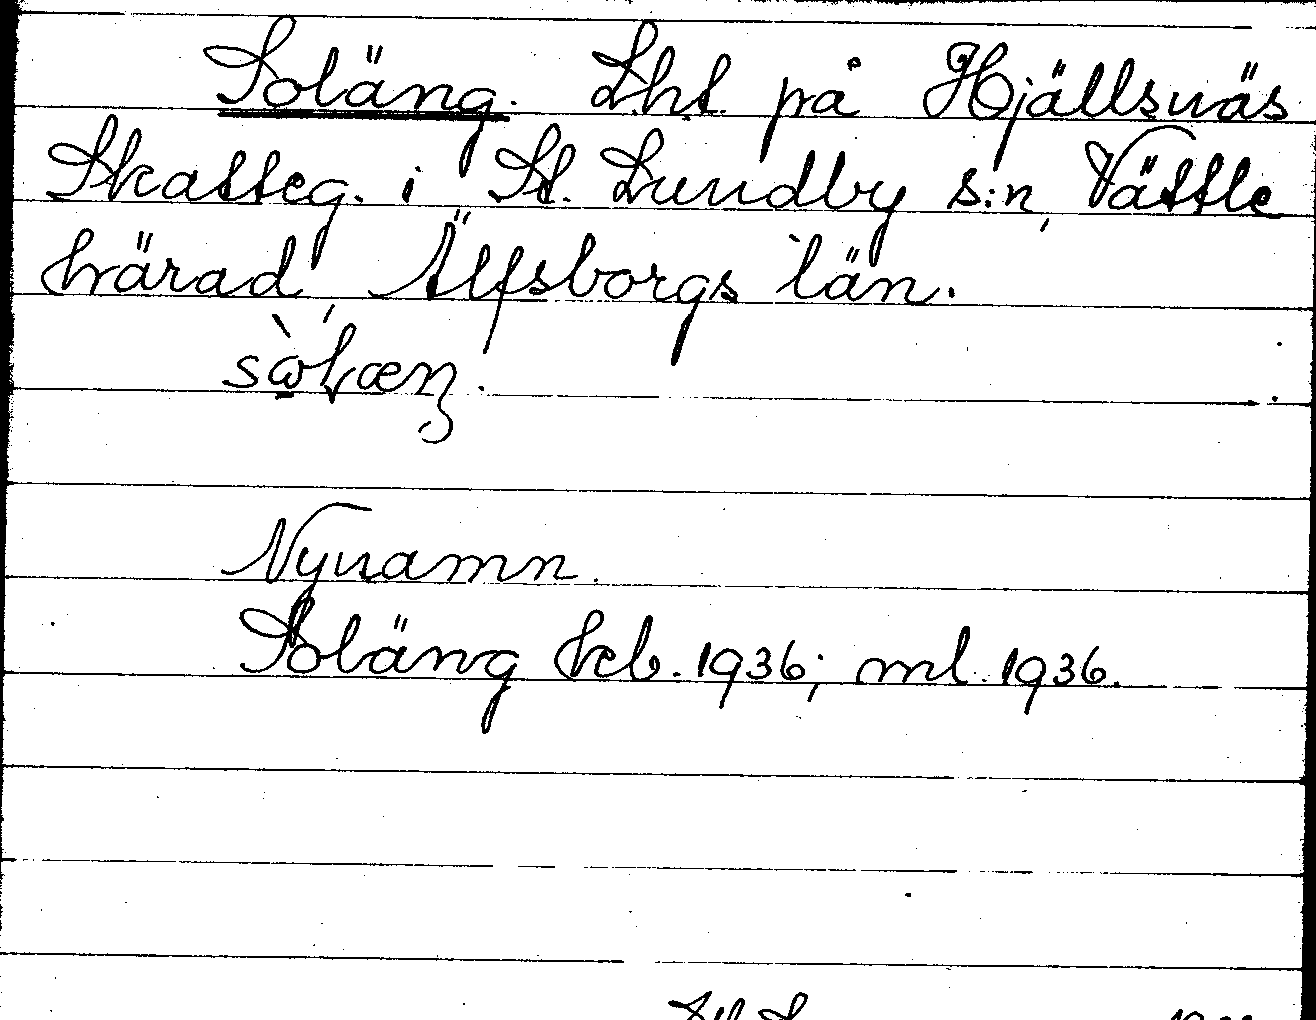 Soläng. Lht på Hjällsnäs
Skatteg. i St. Lundby s:n, Vättle
härad, Älfsborgs län.
Nynamn.
Soläng hcb. 1936; ml. 1936.